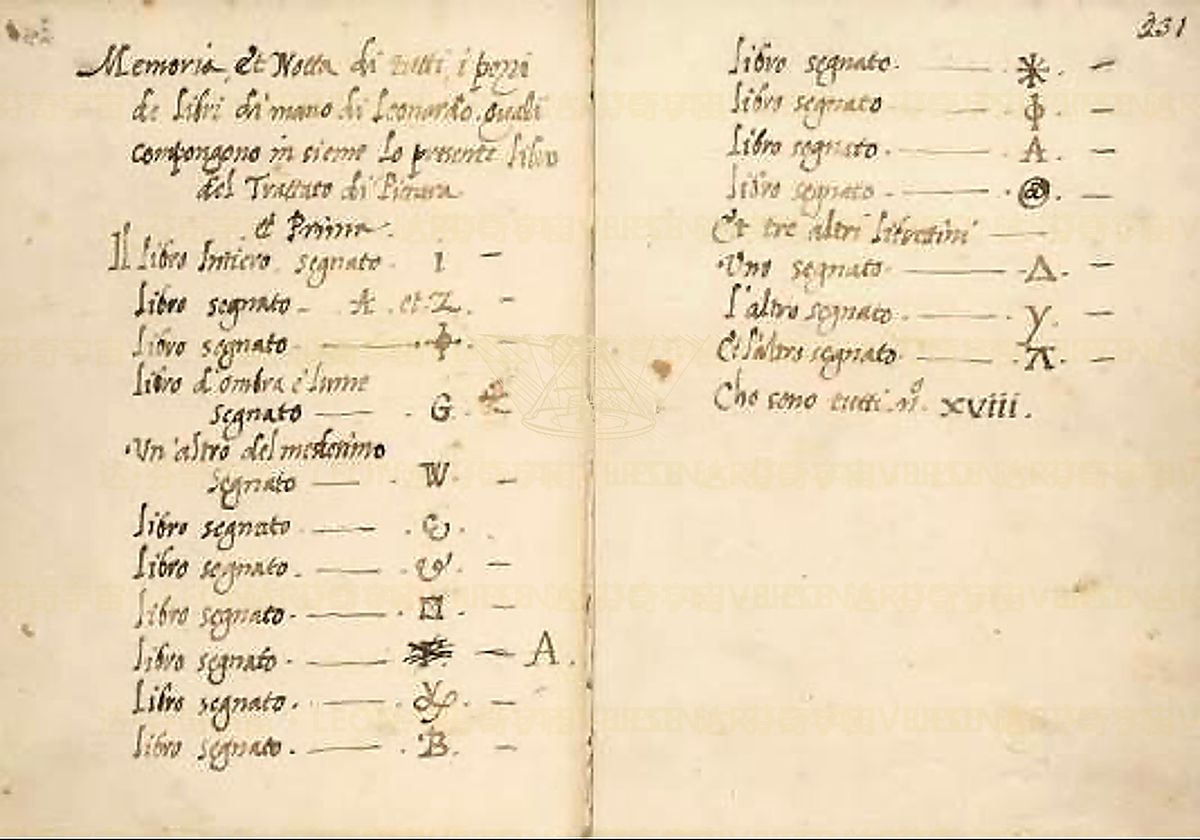 231
Memoria et Notta di tutti i pezzi
de libri di mano di Leonardo, quali
compongono in sieme lo presente libro
del Trattato di Pittura
et Prima.
Il libro Intiero segnato I –
libro segnato – A et Z –
libro segnato
libro d'ombra e lume
segnato — G –
Un'altro del medesimo
segnato — W –
libro segnato —
libro segnato — –
libro segnato — –
libro segnato — – A.
libro segnato — –
libro segnato — B –
libro segnato — –
libro segnato — ϕ –
libro segnato — A –
libro segnato — @ –
Et tre altri libettini —
Uno segnato — Δ –
l'altro segnato — y –
Et l'altro segnato — –
Che sono tutti nº xviii.